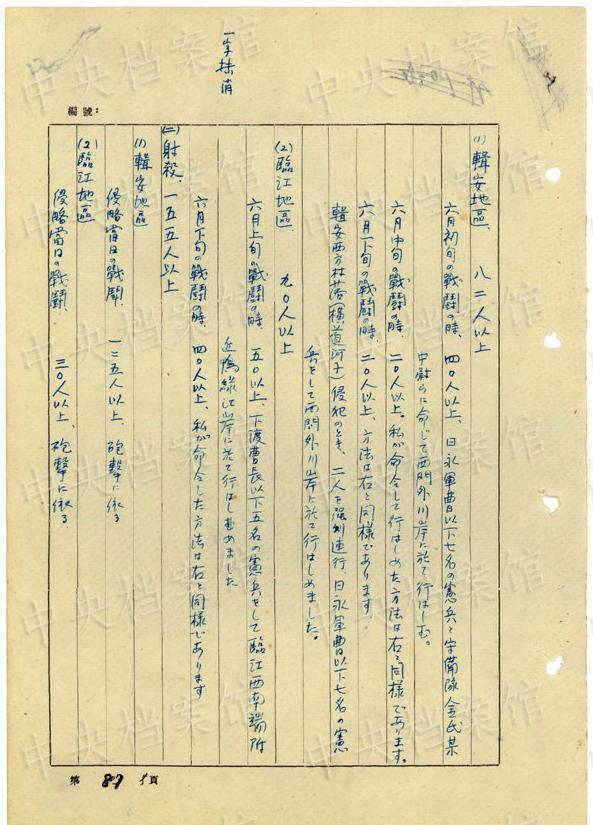 一字抹消
編號：
(1) 輯安地區、 八二人以上
六月初旬の戰鬪の時、 四〇人以上、日永軍曹以下七名の憲兵と守備隊金氏某
中尉らに命じて西門外川岸に於て行はしむ。
六月中旬の戰鬪の時、 二〇人以上。私が命令して行はしめた方法は右と同様であります。
六月下旬の戰鬪の時、 二〇人以上、方法は右と同様であります。
輯安西方村落(橫道河子)侵犯のとき、二人を强制連行、日永軍曹以下七名の憲
兵をして西門外川岸に於て行はしめました。
(2) 臨江地區 九〇人以上
六月上旬の戰鬪の時 五〇以上、下渡曹長以下五名の憲兵をして臨江西南端附
近鴨綠江岸に於て行はしめました
六月下旬の戰鬪の時、 四〇人以上、私が命令した方法は右と同様であります
(二) 射殺 一五五人以上
(1) 輯安地區
侵略當日の戰鬪、 一二五人以上、 砲擊に依る
(2) 臨江地區
侵略當日の戰鬪、 三〇人以上、 砲擊に依る
第 87 頁
中央档案馆